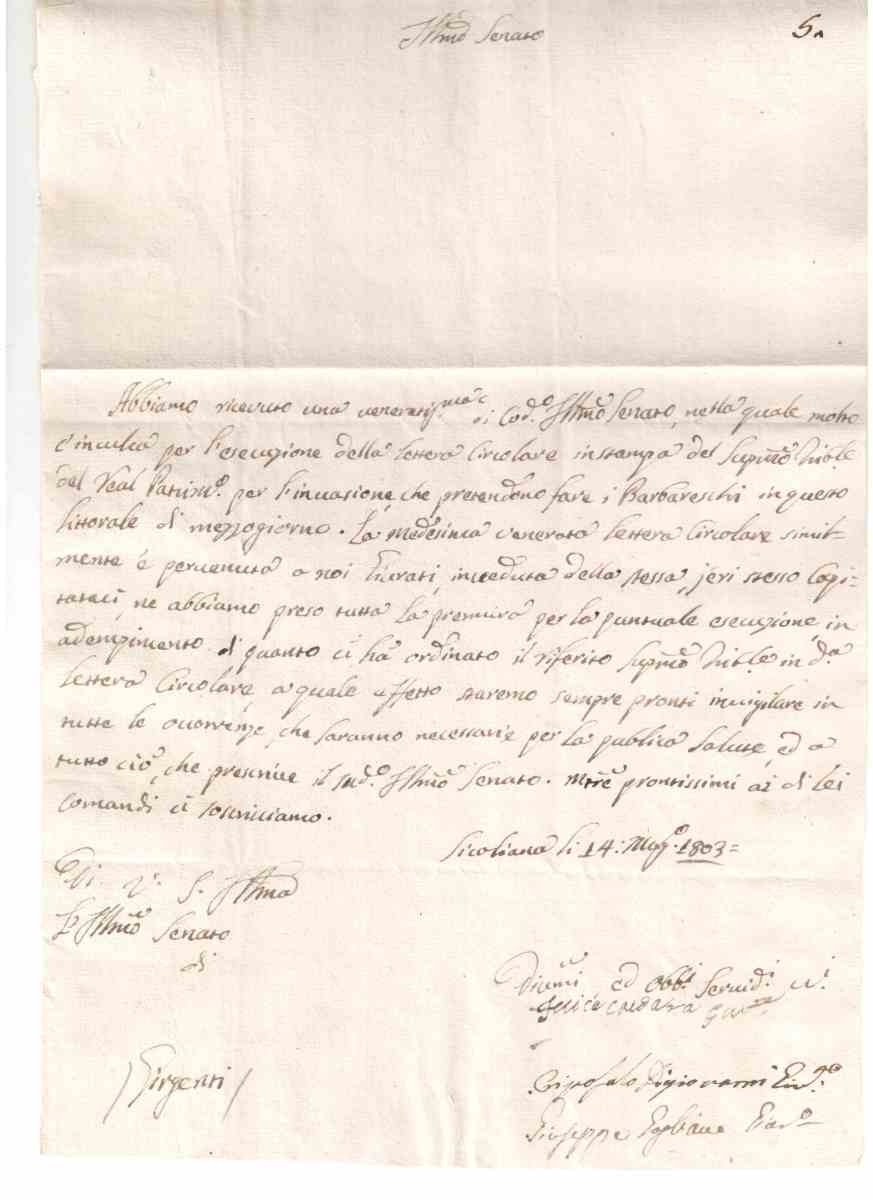 Illmo Senato
5
Abbiamo ricevuto una veneratissma di Cod.o Illmo Senato, nella quale molto
c'inculca per l'esecuzione della lettera Circolare in stampa del Supmo Trible
del Real Patrim.o per l'invasione, che pretendono fare i Barbareschi in questo
littorale di mezzogiorno. La medesima venerata lettera Circolare simil-
mente è pervenuta a noi Giurati, in veduta della stessa, jeri stesso Capi-
tataci, ne abbiamo preso tutta la premura per la puntuale esecuzione, in
adempimento di quanto ci ha ordinato il riferito Supmo Trible in d.a
lettera Circolare, a quale effetto staremo sempre pronti invigilare in
tutte le occorrenze, che saranno necessarie per la publica salute, ed a
tutto ciò, che prescrive il sud.o Illmo Senato. Mtre prontissimi ai di lei
comandi ci soscriviamo.
Siculiana li 14: Mag.o 1803=
Di V. S. Illma
Illmo Senato
di
Girgenti
Divmi, ed obbl.i Servid.i
Felice Caldara
Digiovanni Giu.to
Giuseppe Giur.o